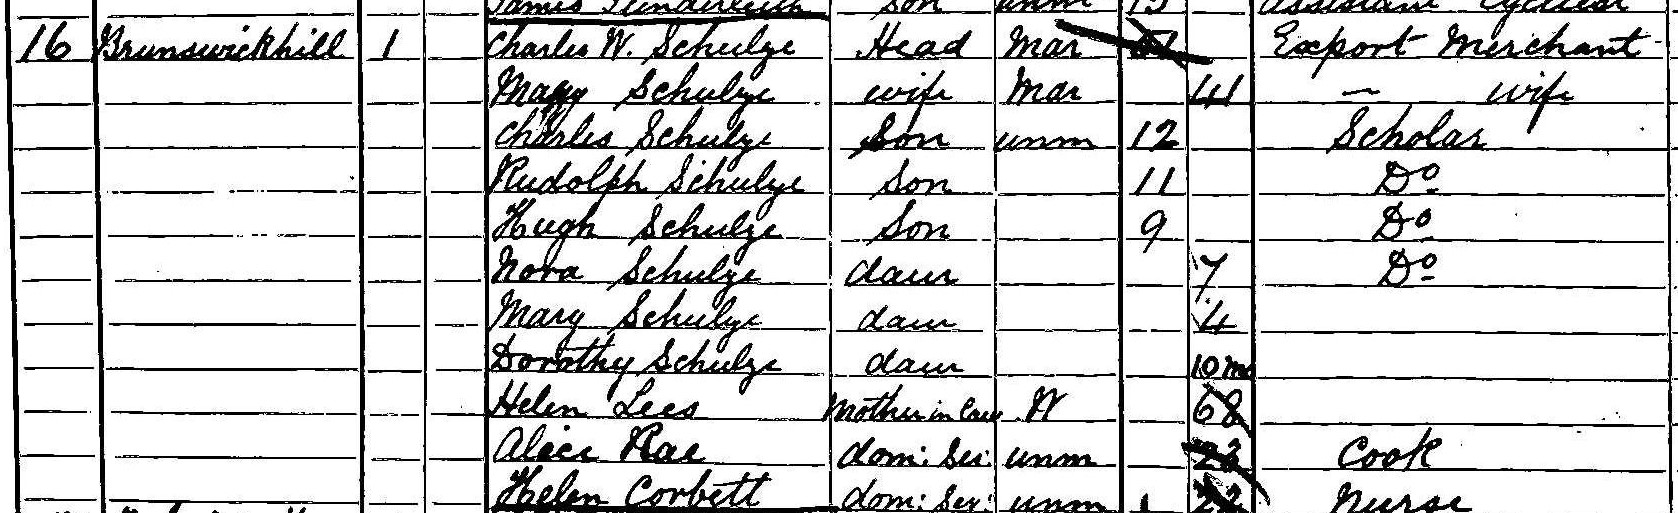 James son unm 15 assistant cyclist
16 Brunswickhill 1 Charles W. Schulze Head Mar Export Merchant
Schulze wife Mar 41 — wife
Charles Schulze Son unm 12 Scholar
Rudolph Schulze Son 11 Do
Hugh Schulze Son 9 Do
Nora Schulze daur 7 Do
Mary Schulze daur 4
Dorothy Schulze daur 10mo
Helen Lees Mother in law W 68
Alice Rae dom: Ser: unm 23 Cook
Helen Corbett dom: Ser: unm 22 Nurse